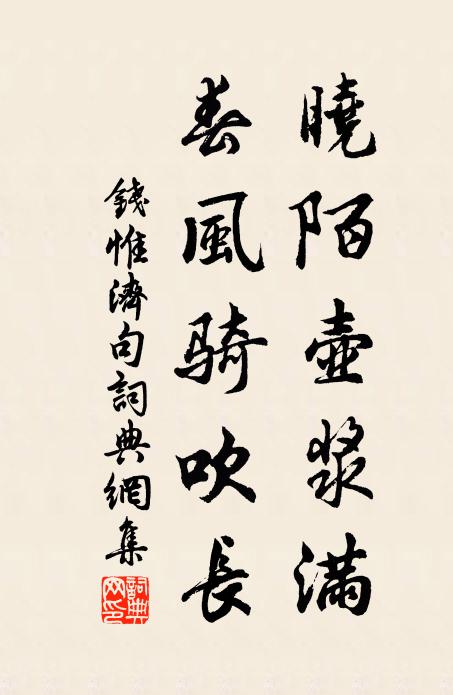 曉陌壺漿滿
春風騎吹長
錢惟濟句詞典網集
詞典網印